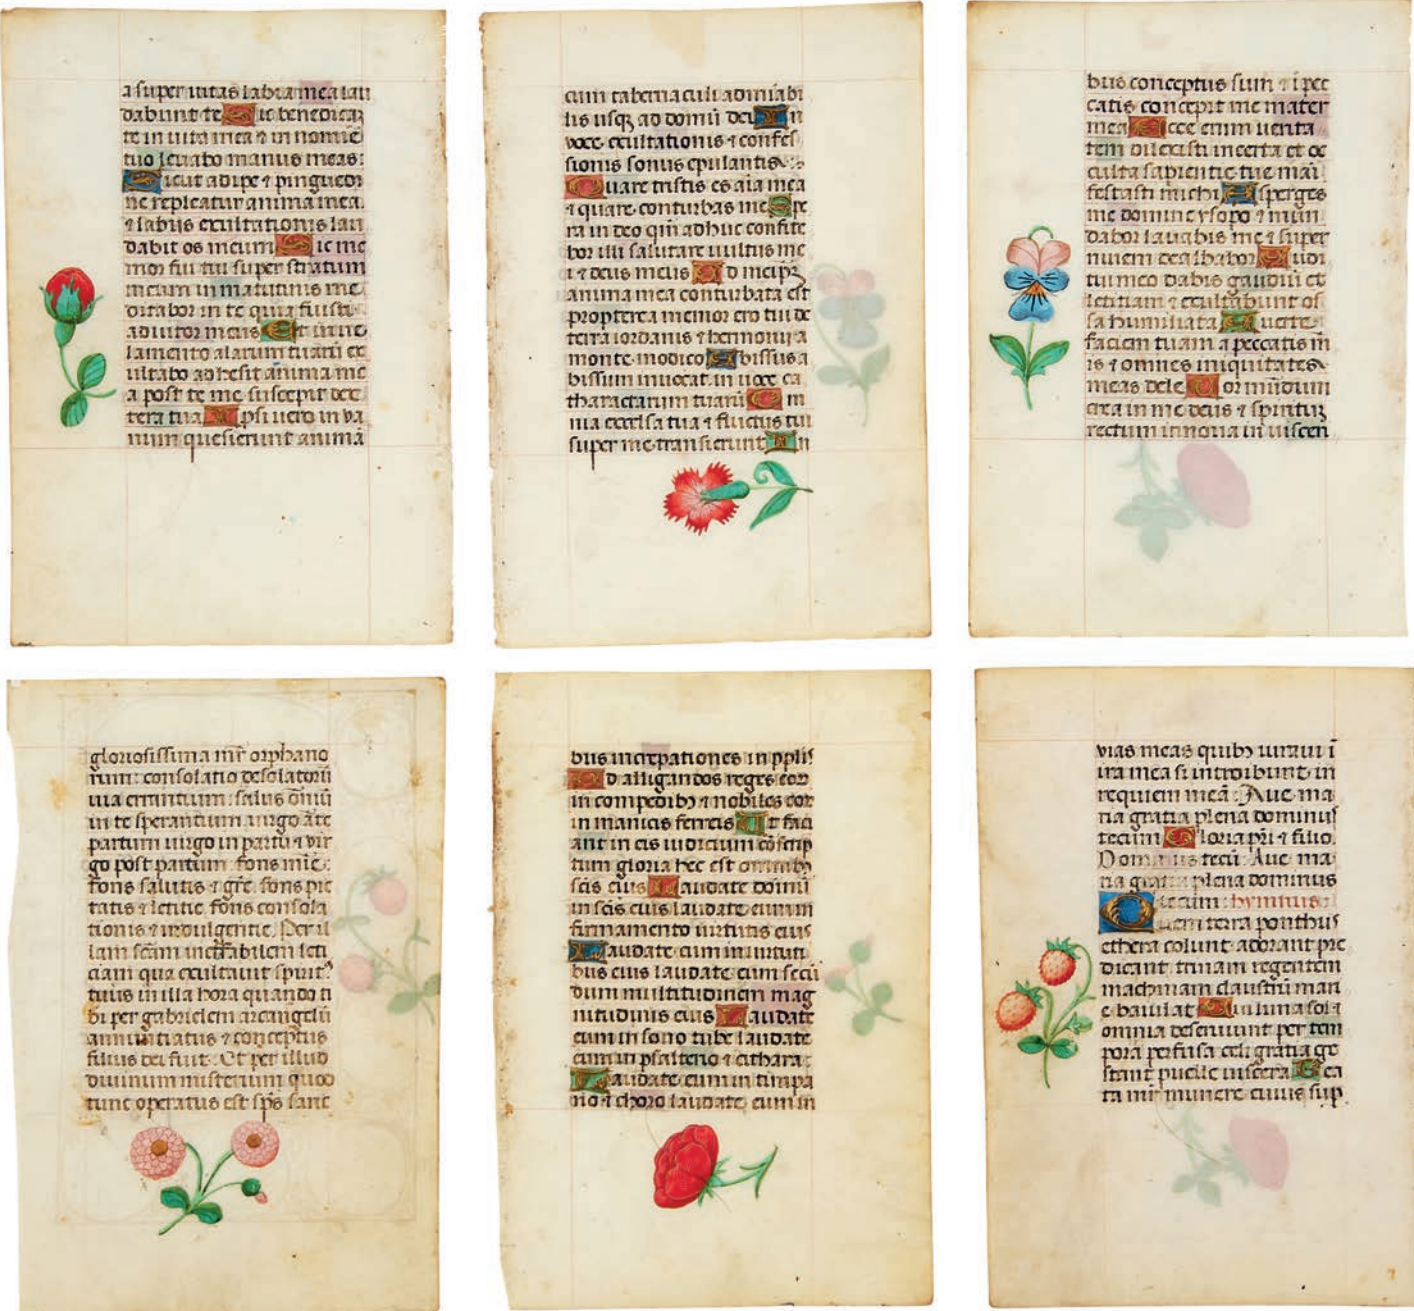 a super vitas labia mea lau
dabunt te Sic benedicaz
te in vita mea ⁊ in nomie
tuo levabo manus meas:
Sicut adipe ⁊ pinguedi
ne repleatur anima mea
⁊ labiis exultationis lau
dabit os meum Sic me
mor fui tui super stratum
meum in matutinis me
ditabor in te quia fuisti
adiutor meus Et in ve
lamento alarum tuarū ex
ultabo adhesit anima me
a post te me suscepit dex
tera tua Ipsi vero in va
num quesierunt animā
cum tabernaculi admirabi
lis usqꝫ ad domū dei In
voce exultationis ⁊ confes
sionis sonus epulantis
Quare tristis es aīa mea
⁊ quare conturbas me Spe
ra in deo qm̄ adhuc confite
bor illi salutare vultus me
i ⁊ deus meus Ad meipꝫ
anima mea conturbata est
propterea memor ero tui de
terra iordanis ⁊ hermonii a
monte modico Abissus a
bissum invocat in voce ca
tharactarum tuarū Om
nia excelsa tua ⁊ fluctus tui
super me transierunt In
bus conceptus sum ⁊ i pec
catis concepit me mater
mea Ecce enim verita
tem dilexisti incerta et oc
culta sapientie tue mani
festasti michi Asperges
me domine ysopo ⁊ mun
dabor lavabis me ⁊ super
nivem dealbabor Audi
tui meo dabis gaudiū et
letitiam ⁊ exultabunt os
sa humiliata Averte
faciem tuam a peccatis m
is ⁊ omnes iniquitates
meas dele Cor mūdum
crea in me deus ⁊ spirituꝫ
rectum innova in viscen
gloriosissima mr̄ orphano
rum: consolatio desolatorū
via errantium: salus om̄iū
in te sperantium virgo āte
partum virgo in partu ⁊ vir
go post partum: fons mīe:
fons salutis ⁊ gr̄e. fons pie
tatis ⁊ letitie. fons consola
tionis ⁊ indulgentie. Per il
lam scām ineffabilem leti
ciam qua exultavit spirit᷒
tuus in illa hora quando ti
bi per gabrielem arcangelū
annuntiatus ⁊ conceptus
filius dei fuit. Et per illud
divinum misterium quod
tunc operatus est sps̄ sanc
bus increpationes in pplis
Ad alligandos reges eor
in compedibꝫ ⁊ nobiles eor
in manicis ferreis Ut faci
ant in eis iudicium cōscrip
tum gloria hec est omnibꝫ
scīs eius Laudate domū
in scīs eius laudate eum in
firmamento virtutis eius
Laudate eum in virtuti
bus eius laudate eum secū
dum multitudinem mag
nitudinis eius Laudate
eum in sono tube laudate
eum in psalterio ⁊ cithara:
Laudate eum in timpa
no ⁊ choro laudate eum in
vias meas quibꝫ iuravi ī
ira mea si introibunt in
requiem meā: Ave ma
ria gratia plena dominus
tecum Gloria pr̄i ⁊ filio.
Dominus tecū: Ave ma
ria gratia plena dominus
tecum: hymnus:
Quem terra ponthus
ethera colunt adorant pre
dicant trinam regentem
machinam claustrū mari
e baiulat Cui luna sol ⁊
omnia deserviunt per tem
pora perfusa celi gratia ge
stant puelle viscera Bea
ta mr̄ munere cuius sup